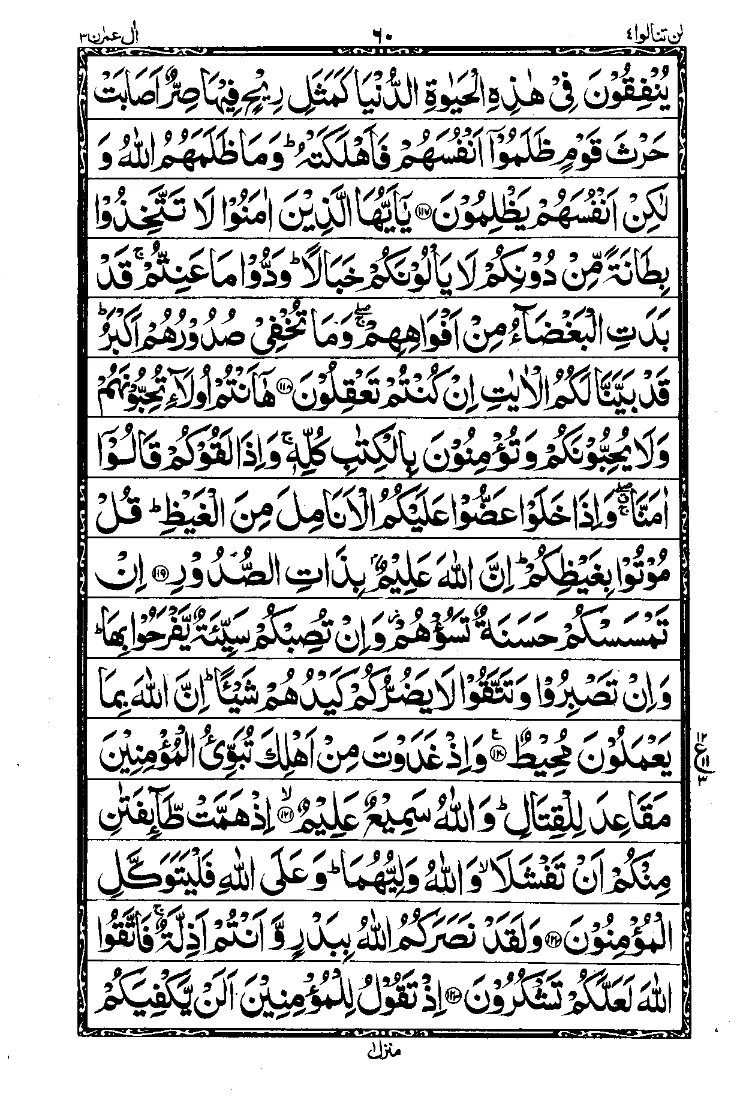 لن تنالوا ٤
٦٠
اٰل عمرٰن ٣
يُنْفِقُوْنَ فِىْ هٰذِهِ الْحَيٰوةِ الدُّنْيَا كَمَثَلِ رِيْحٍ فِيْهَا صِرٌّ اَصَابَتْ
حَرْثَ قَوْمٍ ظَلَمُوْۤا اَنْفُسَهُمْ فَاَهْلَكَتْهُ ؕ وَمَا ظَلَمَهُمُ اللّٰهُ وَ
لٰكِنْ اَنْفُسَهُمْ يَظْلِمُوْنَ ﴿۱۱۷﴾ يٰۤاَيُّهَا الَّذِيْنَ اٰمَنُوْا لَا تَتَّخِذُوْا
بِطَانَةً مِّنْ دُوْنِكُمْ لَا يَاْلُوْنَكُمْ خَبَالًا ؕ وَدُّوْا مَا عَنِتُّمْ ۚ قَدْ
بَدَتِ الْبَغْضَآءُ مِنْ اَفْوَاهِهِمْ ۖۚ وَمَا تُخْفِىْ صُدُوْرُهُمْ اَكْبَرُ ؕ
قَدْ بَيَّنَّا لَكُمُ الْاٰيٰتِ اِنْ كُنْتُمْ تَعْقِلُوْنَ ﴿۱۱۸﴾ هٰۤاَنْتُمْ اُولَآءِ تُحِبُّوْنَهُمْ
وَلَا يُحِبُّوْنَكُمْ وَتُؤْمِنُوْنَ بِالْكِتٰبِ كُلِّهٖ ۚ وَاِذَا لَقُوْكُمْ قَالُوْۤا
اٰمَنَّا ۖۗۚ وَاِذَا خَلَوْا عَضُّوْا عَلَيْكُمُ الْاَنَامِلَ مِنَ الْغَيْظِ ؕ قُلْ
مُوْتُوْا بِغَيْظِكُمْ ؕ اِنَّ اللّٰهَ عَلِيْمٌۢ بِذَاتِ الصُّدُوْرِ ﴿۱۱۹﴾ اِنْ
تَمْسَسْكُمْ حَسَنَةٌ تَسُؤْهُمْ ۫ وَاِنْ تُصِبْكُمْ سَيِّئَةٌ يَّفْرَحُوْا بِهَا ؕ
وَاِنْ تَصْبِرُوْا وَتَتَّقُوْا لَا يَضُرُّكُمْ كَيْدُهُمْ شَيْـًٔا ؕ اِنَّ اللّٰهَ بِمَا
يَعْمَلُوْنَ مُحِيْطٌ ﴿۱۲۰﴾ ۧ وَاِذْ غَدَوْتَ مِنْ اَهْلِكَ تُبَوِّئُ الْمُؤْمِنِيْنَ
مَقَاعِدَ لِلْقِتَالِ ؕ وَاللّٰهُ سَمِيْعٌ عَلِيْمٌ ﴿۱۲۱﴾ ۙ اِذْ هَمَّتْ طَّآئِفَتٰنِ
مِنْكُمْ اَنْ تَفْشَلَا ۙ وَاللّٰهُ وَلِيُّهُمَا ؕ وَعَلَى اللّٰهِ فَلْيَتَوَكَّلِ
الْمُؤْمِنُوْنَ ﴿۱۲۲﴾ وَلَقَدْ نَصَرَكُمُ اللّٰهُ بِبَدْرٍ وَّاَنْتُمْ اَذِلَّةٌ ۚ فَاتَّقُوا
اللّٰهَ لَعَلَّكُمْ تَشْكُرُوْنَ ﴿۱۲۳﴾ اِذْ تَقُوْلُ لِلْمُؤْمِنِيْنَ اَلَنْ يَّكْفِيَكُمْ
منزل ١